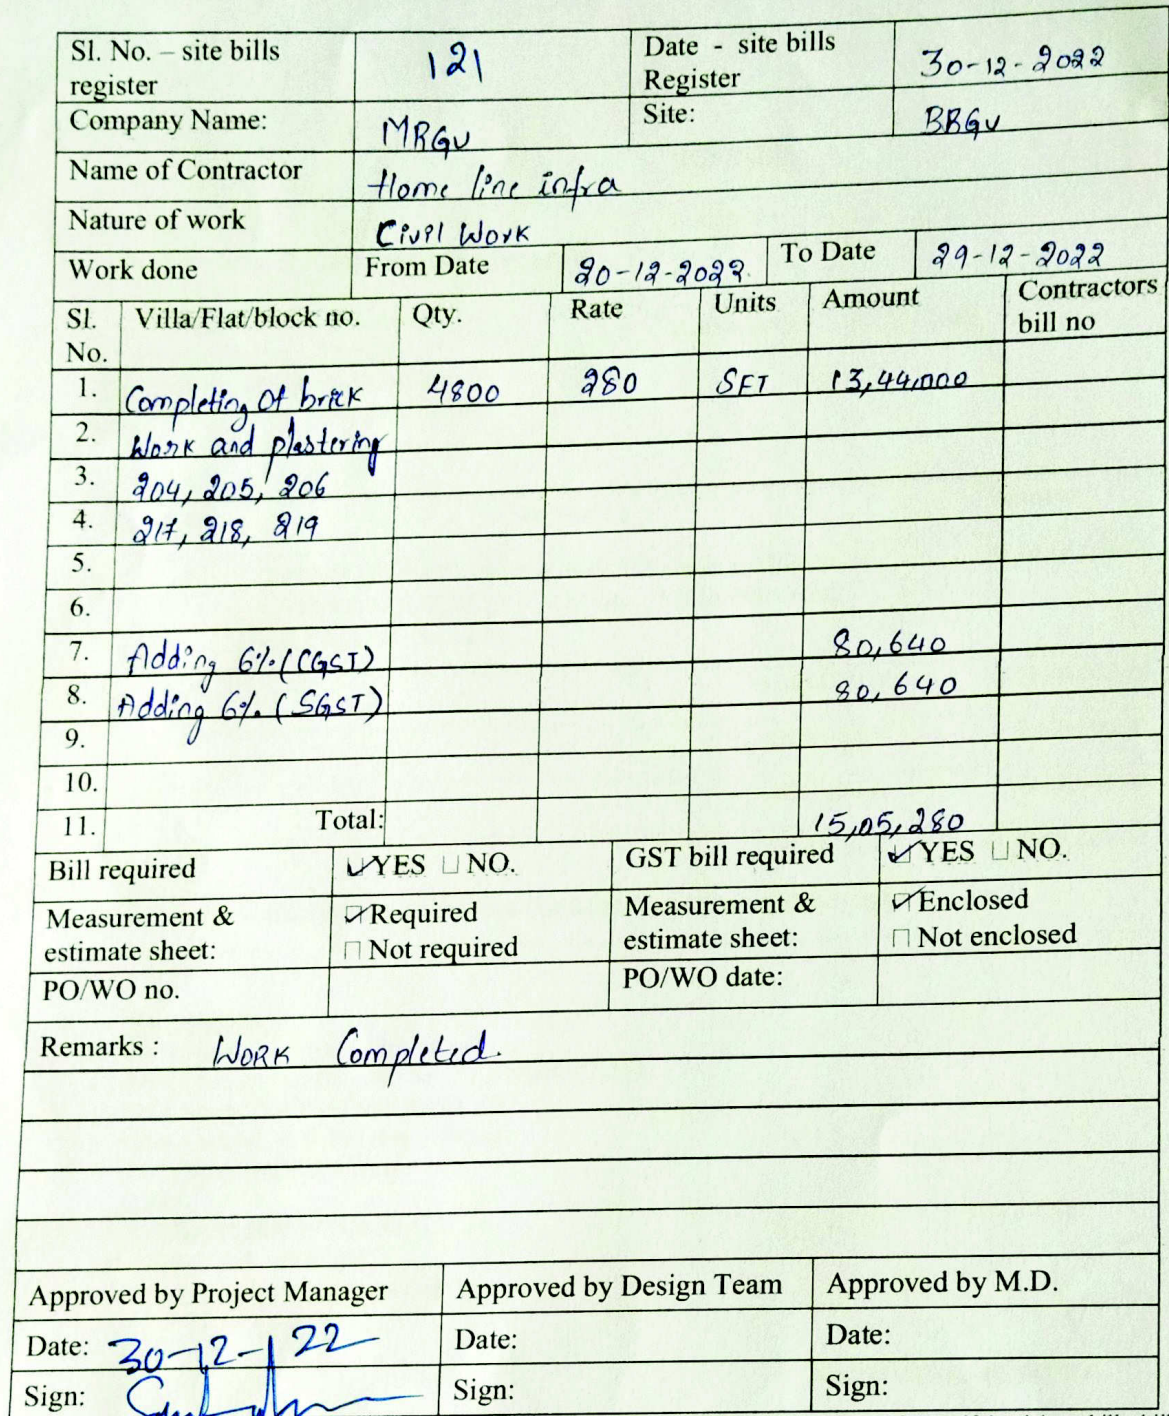 Sl. No. – site bills register 121 Date - site bills Register 30-12-2022
Company Name: MRGV Site: BRGV
Name of Contractor Home line infra
Nature of work Civil Work
Work done From Date 20-12-2022 To Date 29-12-2022
Sl. No. Villa/Flat/block no. Qty. Rate Units Amount Contractors bill no
1. Completing of brick 4800 280 SFT 13,44,000
2. Work and plastering
3. 204, 205, 206
4. 217, 218, 219
5.
6.
7. Adding 6% (CGST) 80,640
8. Adding 6% (SGST) 80,640
9.
10.
11. Total: 15,05,280
Bill required YES NO. GST bill required YES NO.
Measurement & estimate sheet: Required Not required Measurement & estimate sheet: Enclosed Not enclosed
PO/WO no. PO/WO date:
Remarks : Work Completed.
Approved by Project Manager Approved by Design Team Approved by M.D.
Date: 30-12-22 Date: Date:
Sign: Sign: Sign: